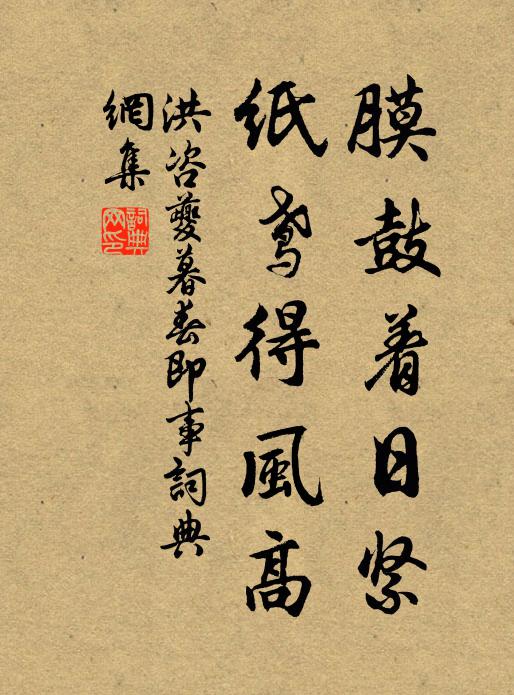 膜鼓着日紧
紙鳶得風高
洪咨夔暮春即事詞典
網集
詞典網印